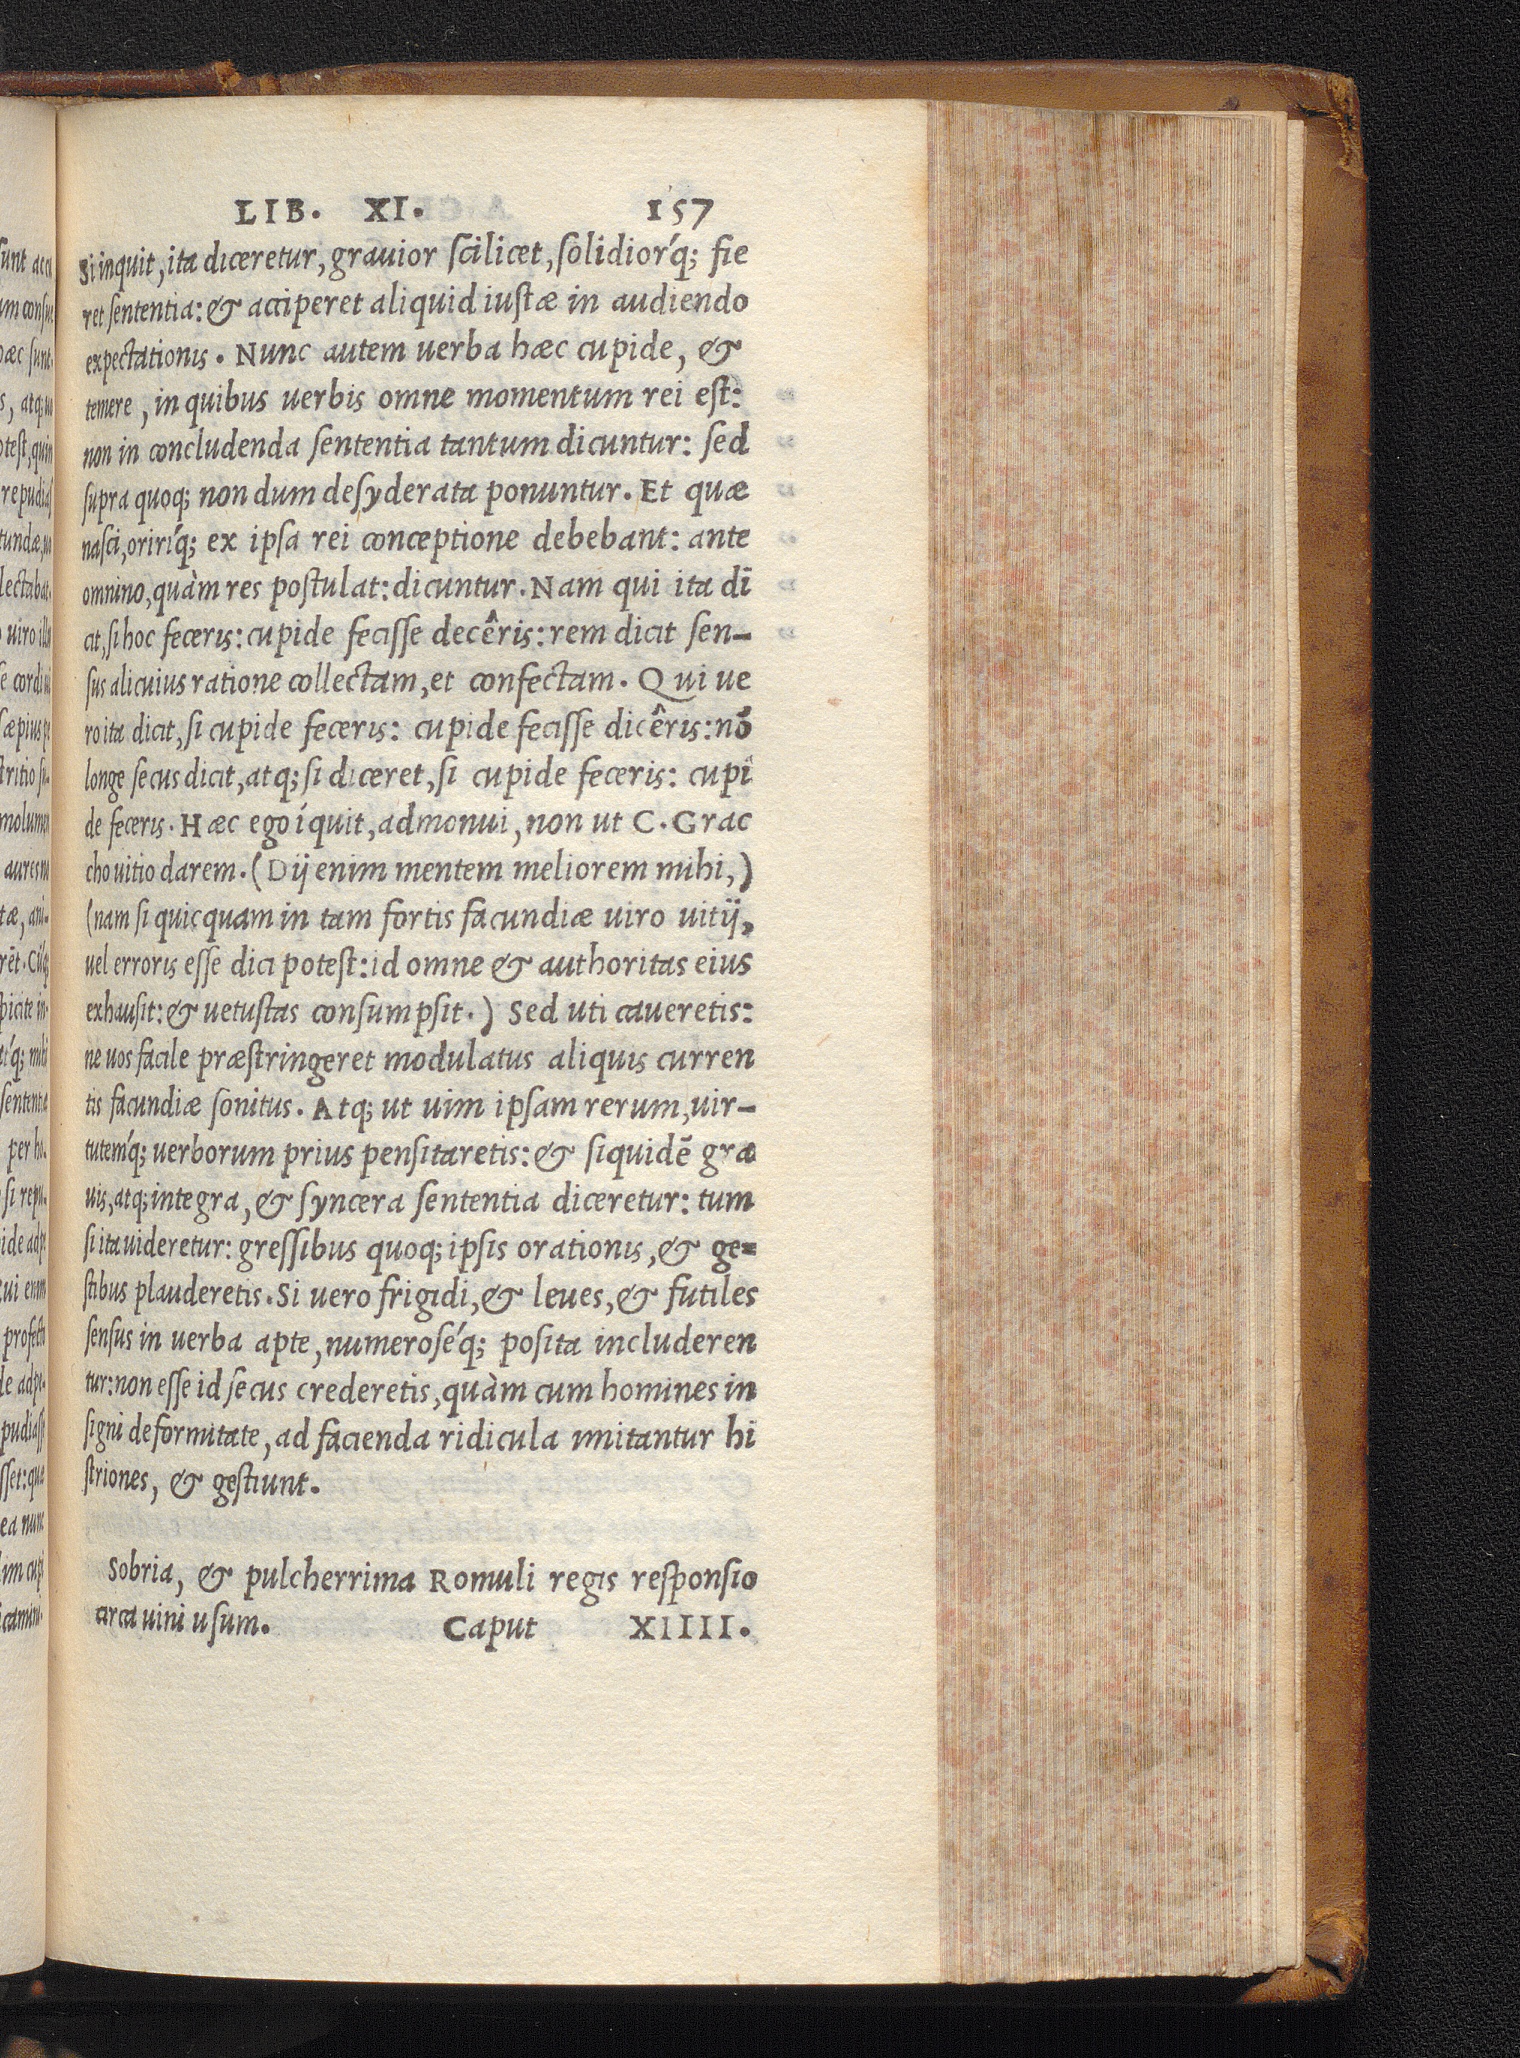 LIB. XI. 157
Si inquit, ita diceretur, grauior scilicet, solidiorq́; fie
ret sententia: & acciperet aliquid iustæ in audiendo
expectationis. Nunc autem uerba hæc cupide, &
temere, in quibus uerbis omne momentum rei est:
non in concludenda sententia tantum dicuntur: sed
supra quoq; non dum desyderata ponuntur. Et quæ
nasci, oririq́; ex ipsa rei conceptione debebant: ante
omnino, quàm res postulat: dicuntur. Nam qui ita di
cit, si hoc feceris: cupide fecisse decêris: rem dicit sen-
sus alicuius ratione collectam, et confectam. Qui ue
ro ita dicit, si cupide feceris: cupide fecisse dicêris: nō
longe secus dicit, atq; si diceret, si cupide feceris: cupi
de feceris. Hæc ego íquit, admonui, non ut C. Grac
cho uitio darem. (Dij enim mentem meliorem mihi,)
(nam si quicquam in tam fortis facundiæ uiro uitij,
uel erroris esse dici potest: id omne & authoritas eius
exhausit: & uetustas consumpsit.) Sed uti caueretis:
ne uos facile præstringeret modulatus aliquis curren
tis facundiæ sonitus. Atq; ut uim ipsam rerum, uir-
tutemq́; uerborum prius pensitaretis: & siquidē gra
uis, atq; integra, & syncera sententia diceretur: tum
si ita uideretur: gressibus quoq; ipsis orationis, & ge=
stibus plauderetis. Si uero frigidi, & leues, & futiles
sensus in uerba apte, numeroseq́; posita includeren
tur: non esse id secus crederetis, quàm cum homines in
signi deformitate, ad facienda ridicula imitantur hi
striones, & gestiunt.
Sobria, & pulcherrima Romuli regis responsio
circa uini usum. Caput XIIII.